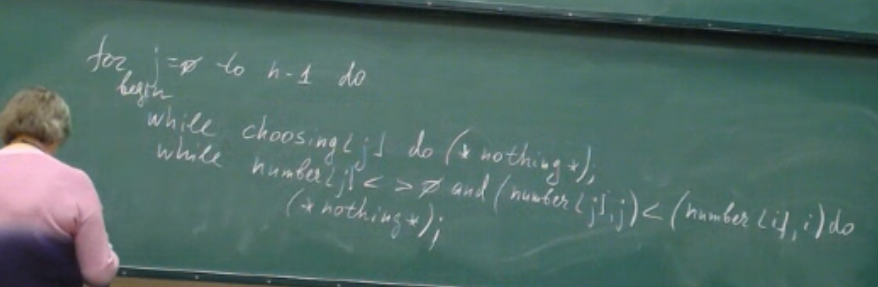 for j=ø to n-1 do
begin
while choosing[j] do (*nothing*);
while number[j]<>ø and (number[j],j)<(number[i],i) do
(*nothing*);